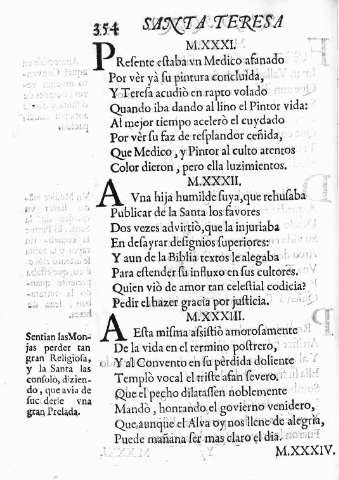 354 SANTA TERESA
M.XXXI.
PResente estaba vn Medico afanado
Por vèr yà su pintura concluìda,
Y Teresa acudiò en rapto volado
Quando iba dando al lino el Pintor vida:
Al mejor tiempo acelerò el cuydado
Por vèr su faz de resplandor ceñida,
Que Medico, y Pintor al culto atentos
Color dieron, pero ella luzimientos.
M.XXXII.
A Vna hija humilde suya, que rehusaba
Publicar de la Santa los favores
Dos vezes advirtiò, que la injuriaba
En desayrar designios superiores:
Y aun de la Biblia textos le alegaba
Para estender su influxo en sus cultores.
Quien viò de amor tan celestial codicia?
Pedir el hazer gracia por justicia.
M.XXXIII.
A Esta misma asistiò amorosamente
De la vida en el termino postrero,
Y al Convento en su pèrdida doliente
Templò vocal el triste afan severo.
Que el pecho dilatassen noblemente
Mandò, honrando el govierno venidero,
Que aunque el Alva oy nos llene de alegria,
Puede mañana ser mas claro el dia.
Sentian las Mon-
jas perder tan
gran Religiosa,
y la Santa las
consolò, dizien-
do, que avia de
sucederle vna
gran Prelada.
M.XXXIV.